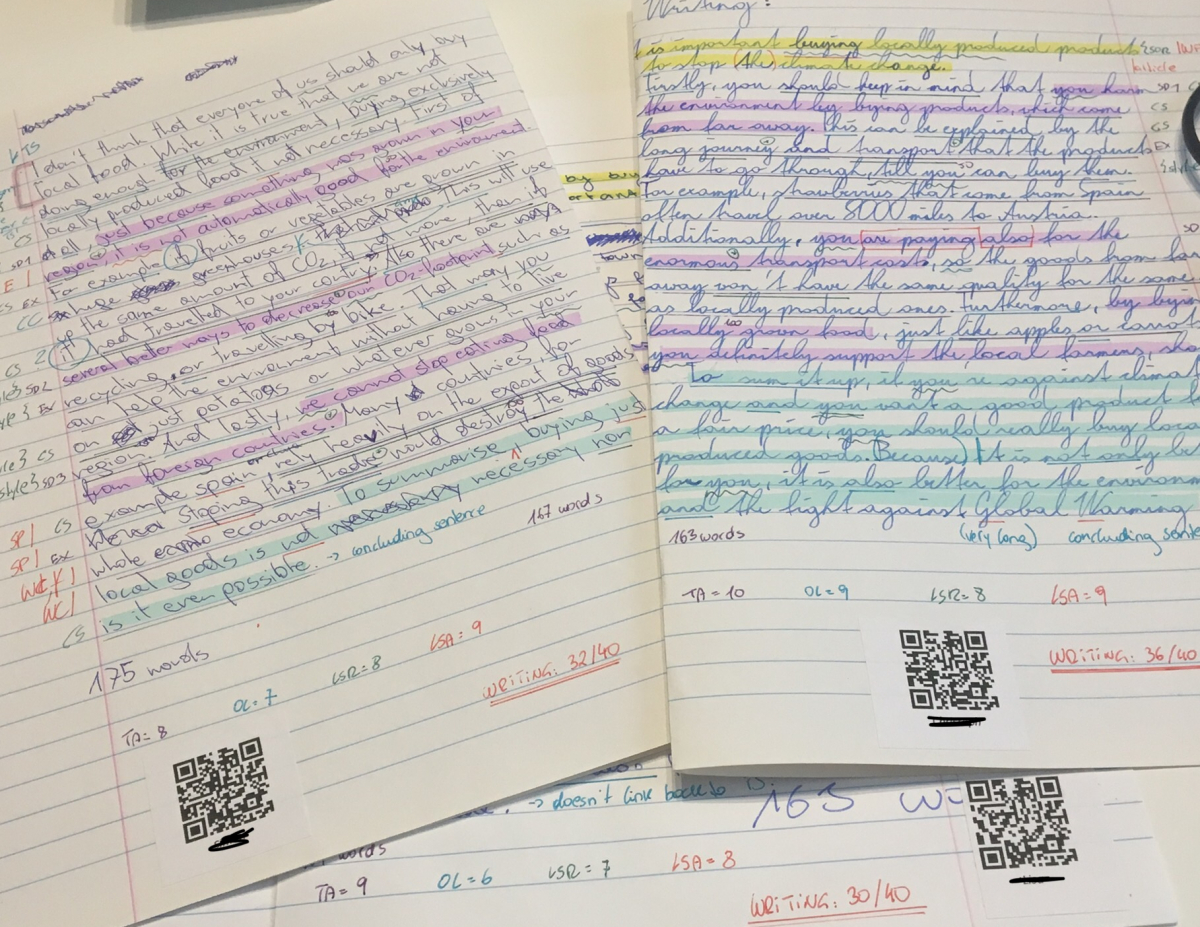 I don't think that everyone of us should only buy
local food. While it is true that we are not
doing enough for the environment, buying exclusively
locally produced food it not necessary. First of
all, just because something was grown in your
region it is not automatically good for the enviroment.
For example if fruits or vegetables are grown in
huge greenhouses, This will use
up the same amount of CO2, if not more, than if
it had travelled to your country. Also there are
several better ways to decrease our CO2-footprint such as
recycling, or travelling by bike. That way you
can help the enviroment without having to live
on just potatoes or whatever grows in your
region. And lastly, we cannot stop eating food
from foreign countries. Many countries, for
example spain, rely heavily on the export of goods
Stoping this Trade would destroy the
whole economy. To summorise, buying just
local goods is not necessary nor
is it even possible. → concluding sentence
167 words
175 words
TA = 8
OL = 7
LSR = 8
LSA = 9
WRITING: 32/40
Writing:
is important buying locally produced products
to stop (the) climate change.
Firstly, you should keep in mind that you harm
the environment by bying products, which come
from far away. This can be explained, by the
long journey and transport that the products
have to go through, till you can buy them.
For example, strawberries that come from Spain
often travel over 8000 miles to Austria.
Additionally, you are paying also for the
enormous transport costs, so the goods from far
away won't have the same quality for the same
as locally produced ones. Furthermore, by bying
locally grown food, just like apples or carrot
you definitely support the local farmers,
To sum it up, if you're against climat
change and you want a good product
a fair price, you should really buy loca
produced goods. (Because) It is not only be
for you, it is also better for the environm
and the fight against Global Warming
163 words
(very long) concluding sente
TA = 10
OL = 9
LSR = 8
LSA = 9
WRITING: 36/40
→ doesn't link back to
163
words
TA = 9
OL = 6
LSR = 7
LSA = 8
WRITING: 30/40